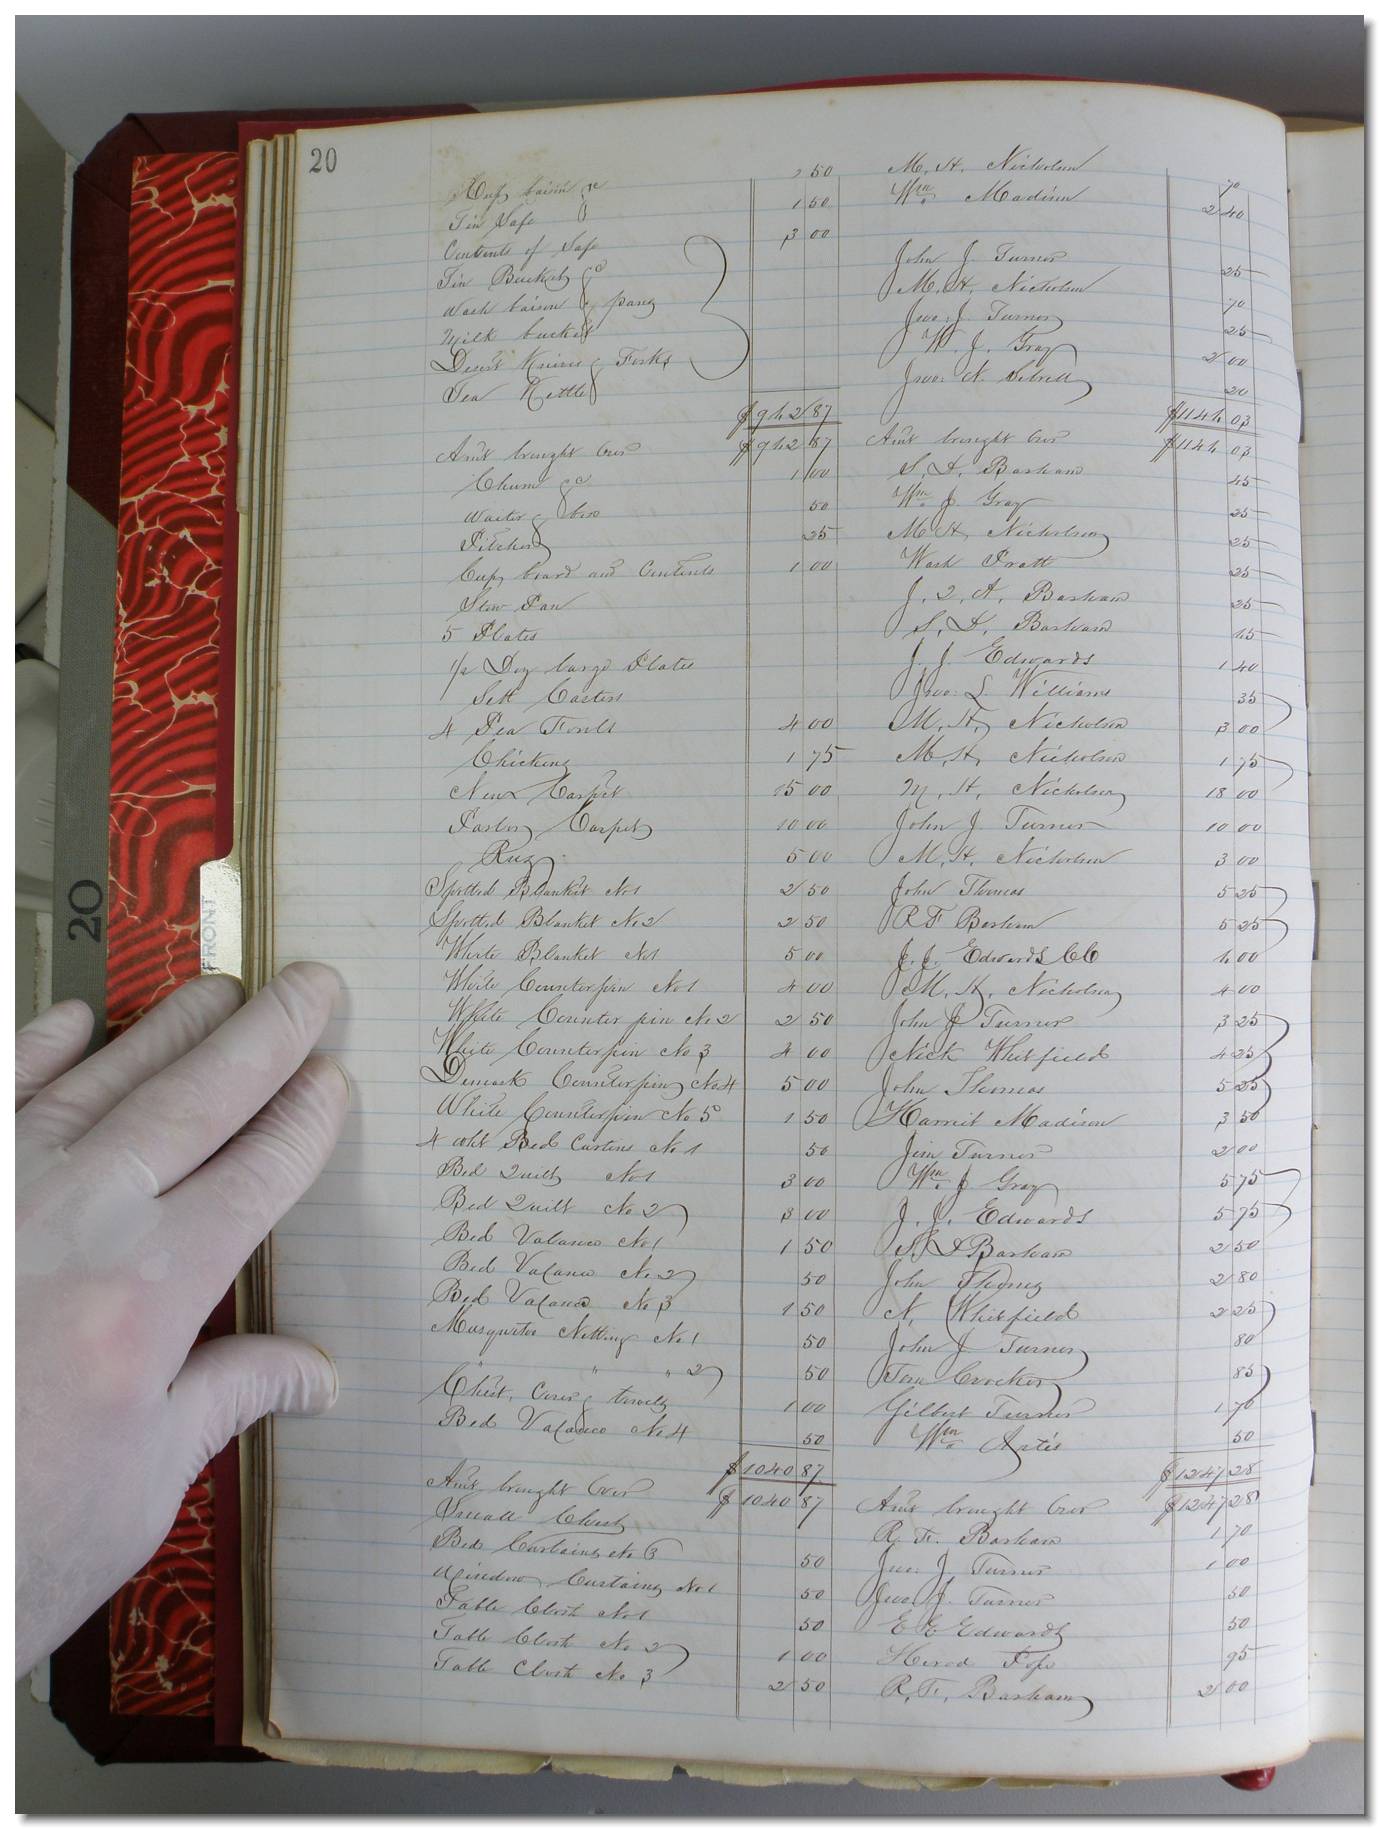 20
Cups baisin &c 2 50 M. H. Nicholson 70
Tin Safe 1 50 Wm Madison 2 40
Contents of Safe 3 00
Tin Buckets &c John J Turner 25
Wash baison & pans M. H. Nicholson 70
Milk buckets Jno. J. Turner 25
Desert Knives & Forks W. J. Gray 2 00
Tea Kettle Jno. N. Sebrell 20
$942 87 $1144 03
Amt brought Over $942 87 Amt brought Over $1144 03
Churn &c 1 00 S. D. Barham 45
Waiter & box 50 Wm J Gray 25
Pitcher 25 M H, Nicholson 25
Cup board and Contents 1 00 Wash Pratt 25
Stew Pan J. Q. A. Barham 25
5 Plates S. D. Barham 45
1/2 Doz large Plates J. J. Edwards 1 40
Sett Casters Jno: L. Williams 35
4 Pea Fowls 4 00 M. H, Nicholson 3 00
Chickens 1 75 M, H, Nicholson 1 75
New Carpet 15 00 M, H, Nicholson 18 00
Parlor Carpet 10 00 John J Turner 10 00
Rug 5 00 M, H. Nicholson 3 00
Spotted Blanket No 1 2 50 John Thomas 5 25
Spotted Blanket No 2 2 50 R F Barham 5 25
White Blanket No 1 5 00 J. J. Edwards CC 4 00
White Counterpin No 1 4 00 M, H, Nicholson 4 00
White Counter pin No 2 2 50 John J Turner 3 25
White Counterpin No 3 4 00 Nick Whitfield 4 25
Demask Counterpin No 4 5 00 John Thomas 5 25
White Counterpin No 5 1 50 Harriet Madison 3 50
4 wht Bed Curtins No 1 50 Jim Turner 2 00
Bed Quilt No 1 3 00 Wm J Gray 5 75
Bed Quilt No 2 3 00 J. J. Edwards 5 75
Bed Valance No 1 1 50 S. D Barham 2 50
Bed Valance No 2 50 John Thomas 2 80
Bed Valance No 3 1 50 N, Whitfield 2 25
Musquitoe Netting No 1 50 John J Turner 80
" " " 2 50 Tom Crocker 85
Chest, Cover & towels 1 00 Gilbert Turner 1 70
Bed Valance No 4 50 Wm Artis 50
$1040 87 $1247 28
Amt brought Over $1040 87 Amt brought Over $1247 28
Small Chest R. F. Barham 1 70
Bed Curtains No 3 50 Jno: J Turner 1 00
Window Curtains No 1 50 Jno. J. Turner 50
Table Cloth No 1 50 E E Edwards 50
Table Cloth No 2 1 00 Herod Pope 95
Table Cloth No 3 2 50 R, F, Barham 2 00
20
FRONT